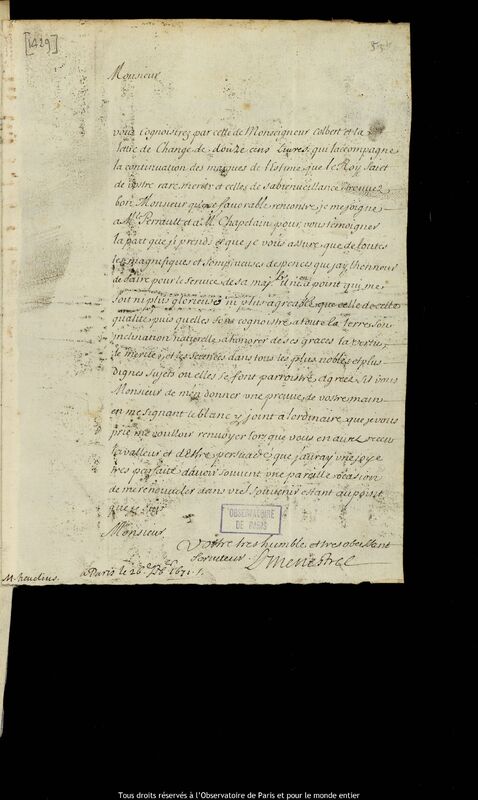 [1429]
Monsieur
vous cognoistrez par cette de Monseigneur Colbert et la
lettre de Change de douze cens Livres, qui l'accompagne
la continuation des marques de l'estime que le Roy faict
de vostre rare merite et celles de sa bienveillance trouvez
bon Monsieur qu'en si favorable rencontre je me joigne
a Mr Perrault et a Mr Chapelain pour vous temoigner
la part que j'i prends et que je vous assure que de toutes
les magnifiques et somptueuses despences que j'ay l'honneur
de faire pour le service de sa maj.té il n'i a point qui me
soit ni plus glorieuse ni plus agreable que celle de cette
qualité puis quelles font cognoistre a toute la terre son
inclination naturelle a honorer de ses graces la vertu,
le merite, et les sciences dans tous les plus nobles et plus
dignes sujets ou elles se font parroistre, agreez s'il vous
Monsieur de m'en donner une preuve de vostre main
en me signant le blanc y joint a l'ordinaire que je vous
prie me voulloir renvoyer lors que vous en aurez receu
la valleur et d'estre persuadé que j'auray une joye
tres parfaite d'avoir souvent une pareille ocasion
de me renouveler dans vostre souvenir estant au poinct
que je suis
Monsieur
OBSERVATOIRE
DE PARIS
Vostre tres humble et tres obeissant
serviteur Le Menestrel
M. hevelius.
a Paris le 26.e 1671.
Tous droits réservés à l'Observatoire de Paris et pour le monde entier